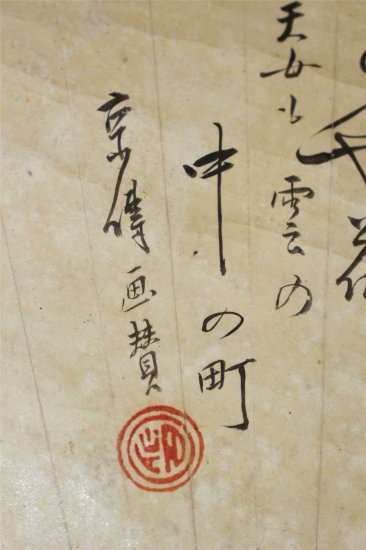 天女も雲の
中の町
京傳画賛